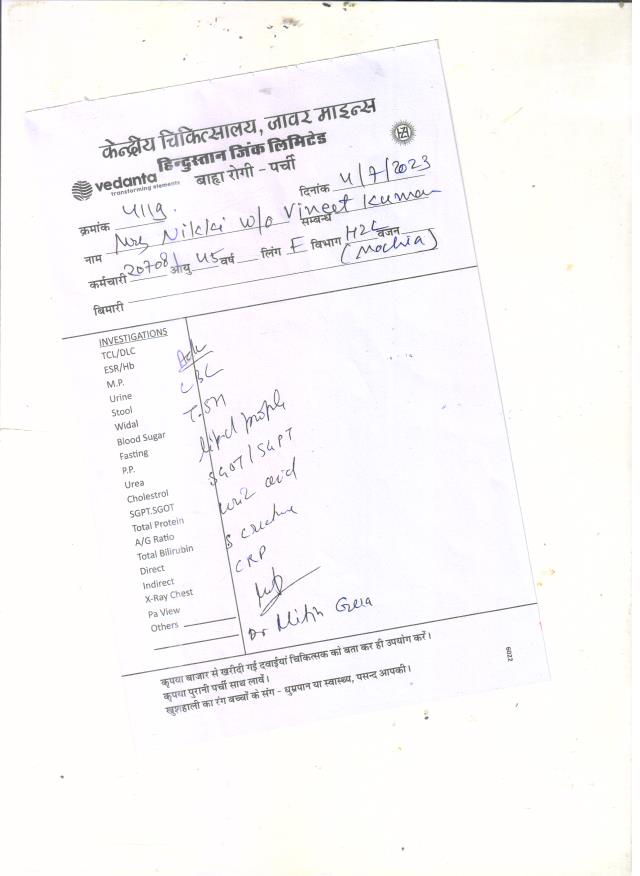 केन्द्रीय चिकित्सालय, जावर माइन्स
हिन्दुस्तान जिंक लिमिटेड
vedanta
transforming elements
बाह्य रोगी - पर्ची
क्रमांक 4119. दिनांक 4/7/2023
नाम Mrs Nikki w/o Vineet Kumar सम्बन्ध
कर्मचारी 20708 आयु 45 वर्ष लिंग F विभाग HZL वजन
(Mochia)
बिमारी
INVESTIGATIONS
TCL/DLC
ESR/Hb
M.P.
Urine
Stool
Widal
Blood Sugar
Fasting
P.P.
Urea
Cholestrol
SGPT.SGOT
Total Protein
A/G Ratio
Total Bilirubin
Direct
Indirect
X-Ray Chest
Pa View
Others
Adv
CBC
T-SH
lipid profile
SGOT/SGPT
uric acid
S creatine
CRP
Dr Nitin
कृपया बाजार से खरीदी गई दवाईयां चिकित्सक को बता कर ही उपयोग करें।
कृपया पुरानी पर्ची साथ लावें।
खुशहाली का रंग बच्चों के संग - धुम्रपान या स्वास्थ्य, पसन्द आपकी।
6022